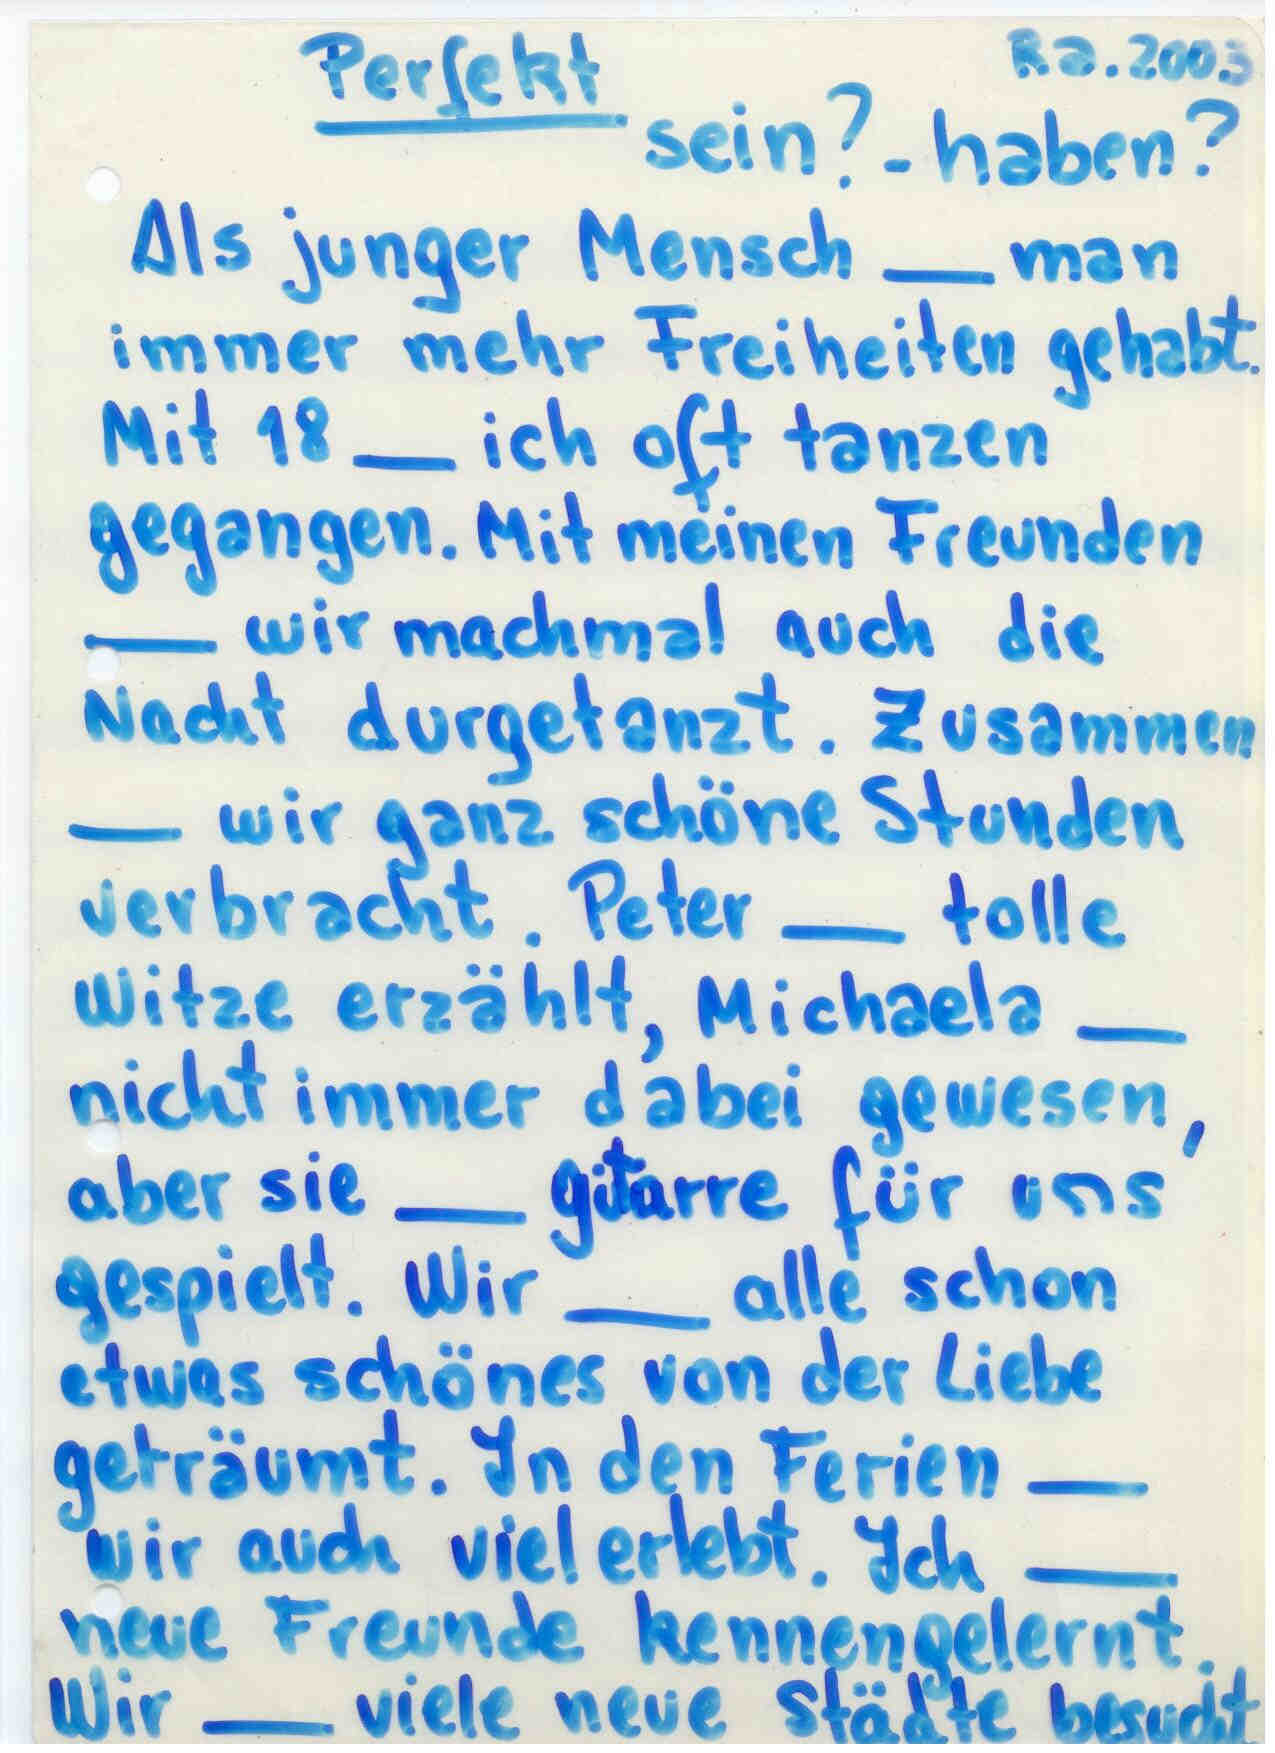 Perfekt Ra. 2003
sein? - haben?
Als junger Mensch ___ man
immer mehr Freiheiten gehabt.
Mit 18 ___ ich oft tanzen
gegangen. Mit meinen Freunden
___ wir machmal auch die
Nacht durgetanzt. Zusammen
___ wir ganz schöne Stunden
verbracht. Peter ___ tolle
Witze erzählt, Michaela ___
nicht immer dabei gewesen,
aber sie ___ gitarre für uns
gespielt. Wir ___ alle schon
etwas schönes von der Liebe
geträumt. In den Ferien ___
wir auch viel erlebt. Ich ___
neue Freunde kennengelernt.
Wir ___ viele neue Städte besucht